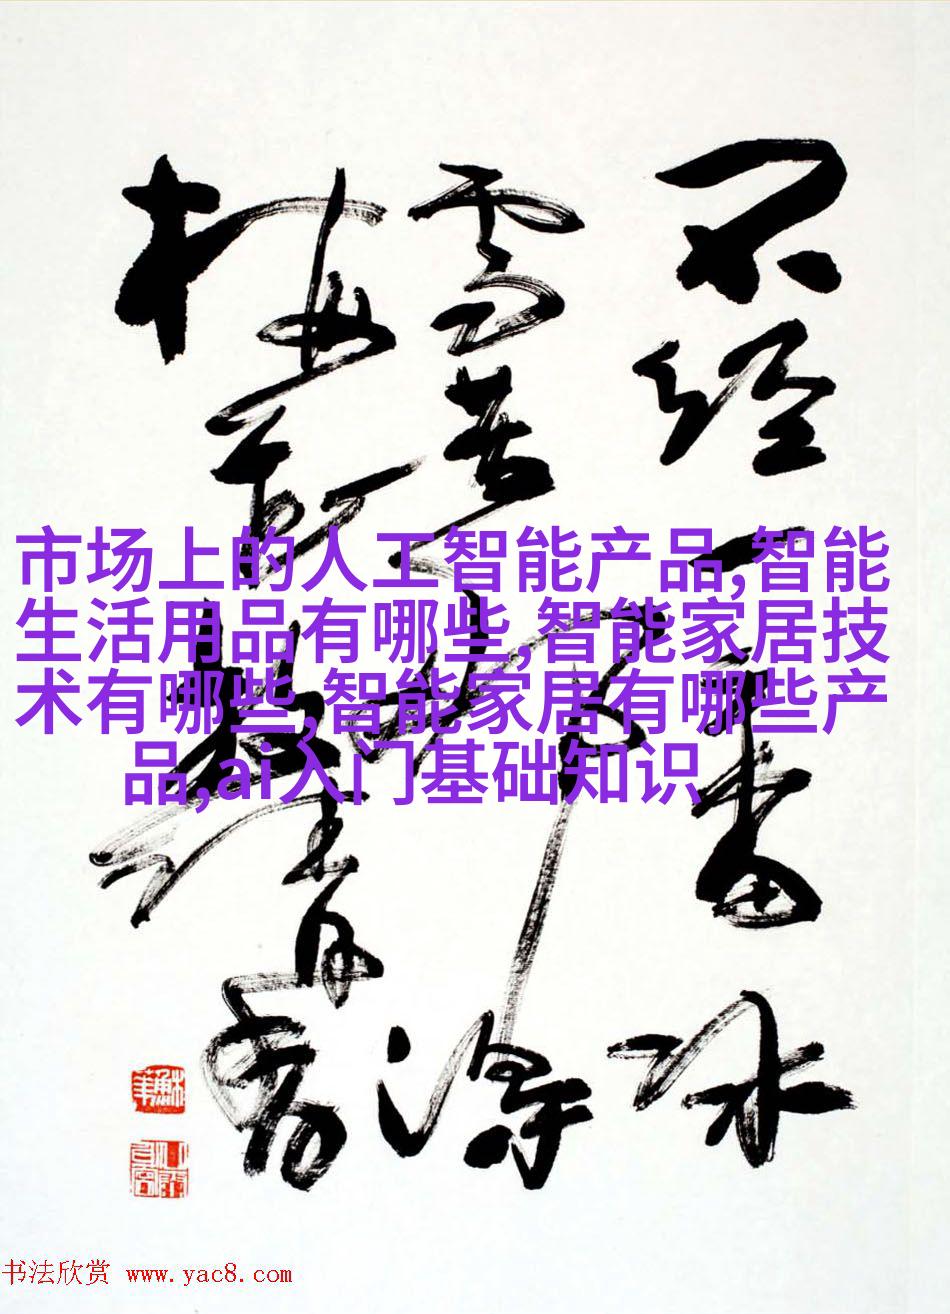 不经一番冰
雪苦得
梅清香
市场上的人工智能产品,智能
生活用品有哪些,智能家居技
术有哪些,智能家居有哪些产
品,ai入门基础知识
书法欣赏 www.yac8.com